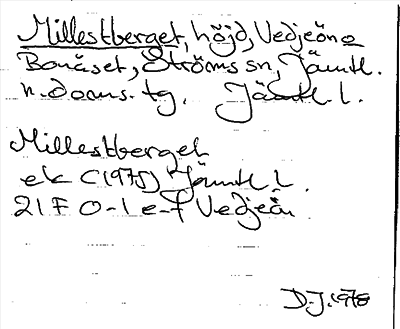 Millestberget, höjd, Vedjeöno
Bonäset, Ströms sn, Jämtl.
n. doms. tg. Jämtl. l.
Millestberget
ek C (1975) Jämtl l.
21 F 0-1 e-f Vedjeön
D-J. 1978